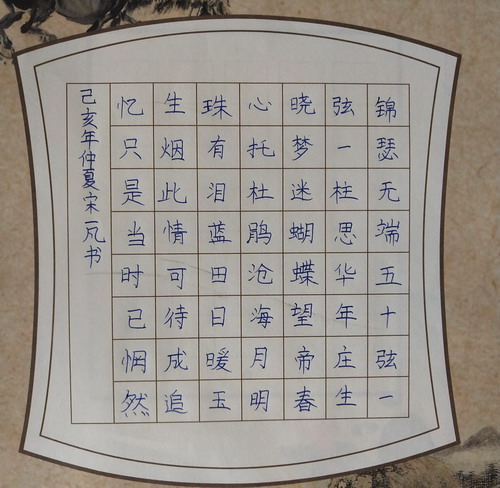 锦瑟无端五十弦一
弦一柱思华年庄生
晓梦迷蝴蝶望帝春
心托杜鹃沧海月明
珠有泪蓝田日暖玉
生烟此情可待成追
忆只是当时已惘然
己亥年仲夏宋一凡书